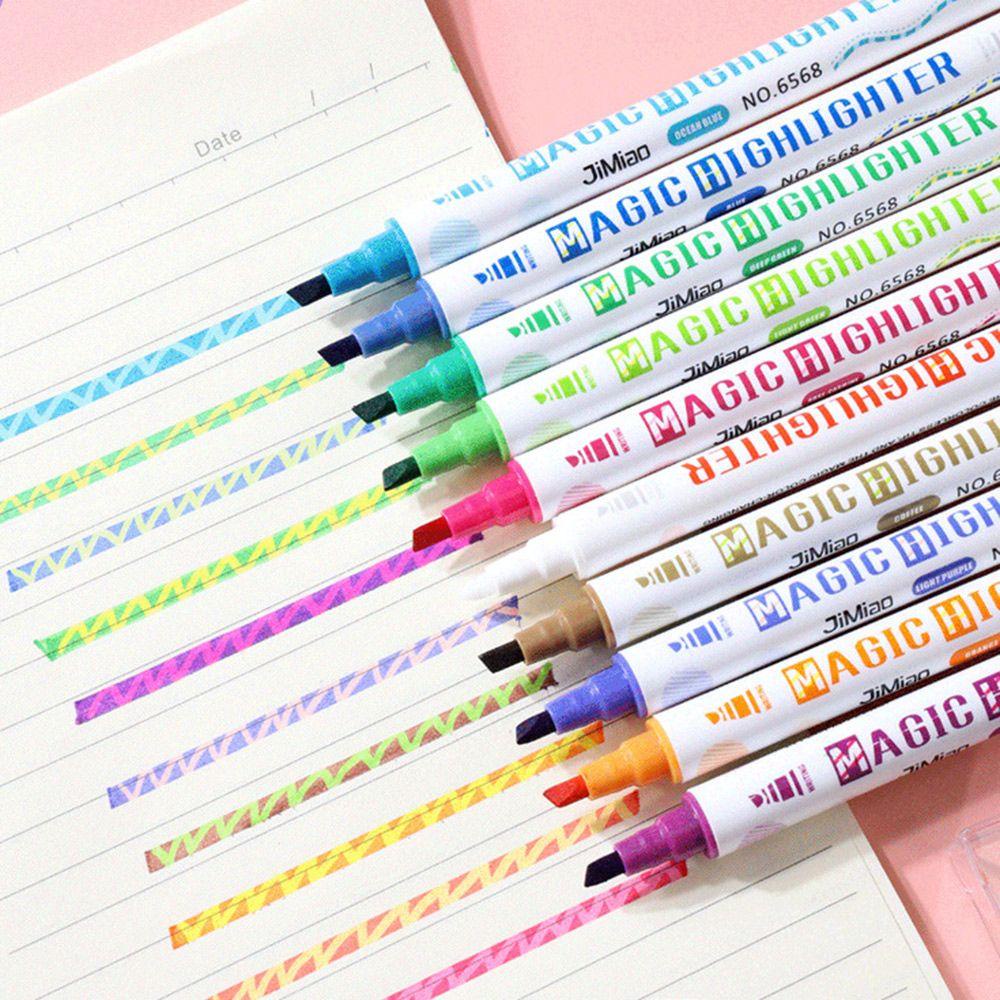 Date / /
MAGIC HIGHLIGHTER
JiMiao
OCEAN BLUE
NO.6568
MAGIC HIGHLIGHTER
JiMiao
BLUE
NO.6568
MAGIC HIGHLIGHTER
JiMiao
DEEP GREEN
NO.6568
MAGIC HIGHLIGHTER
JiMiao
LIGHT GREEN
NO.6568
MAGIC HIGHLIGHT
JiMiao
NO.6568
HIGHLIGHTER
MAGIC HIGHLI
JiMiao
COFFEE
NO.6
MAGIC HIGH
JiMiao
LIGHT PURPLE
MAGIC HI
JiMiao
ORANGE
MAGIC H
JiMiao